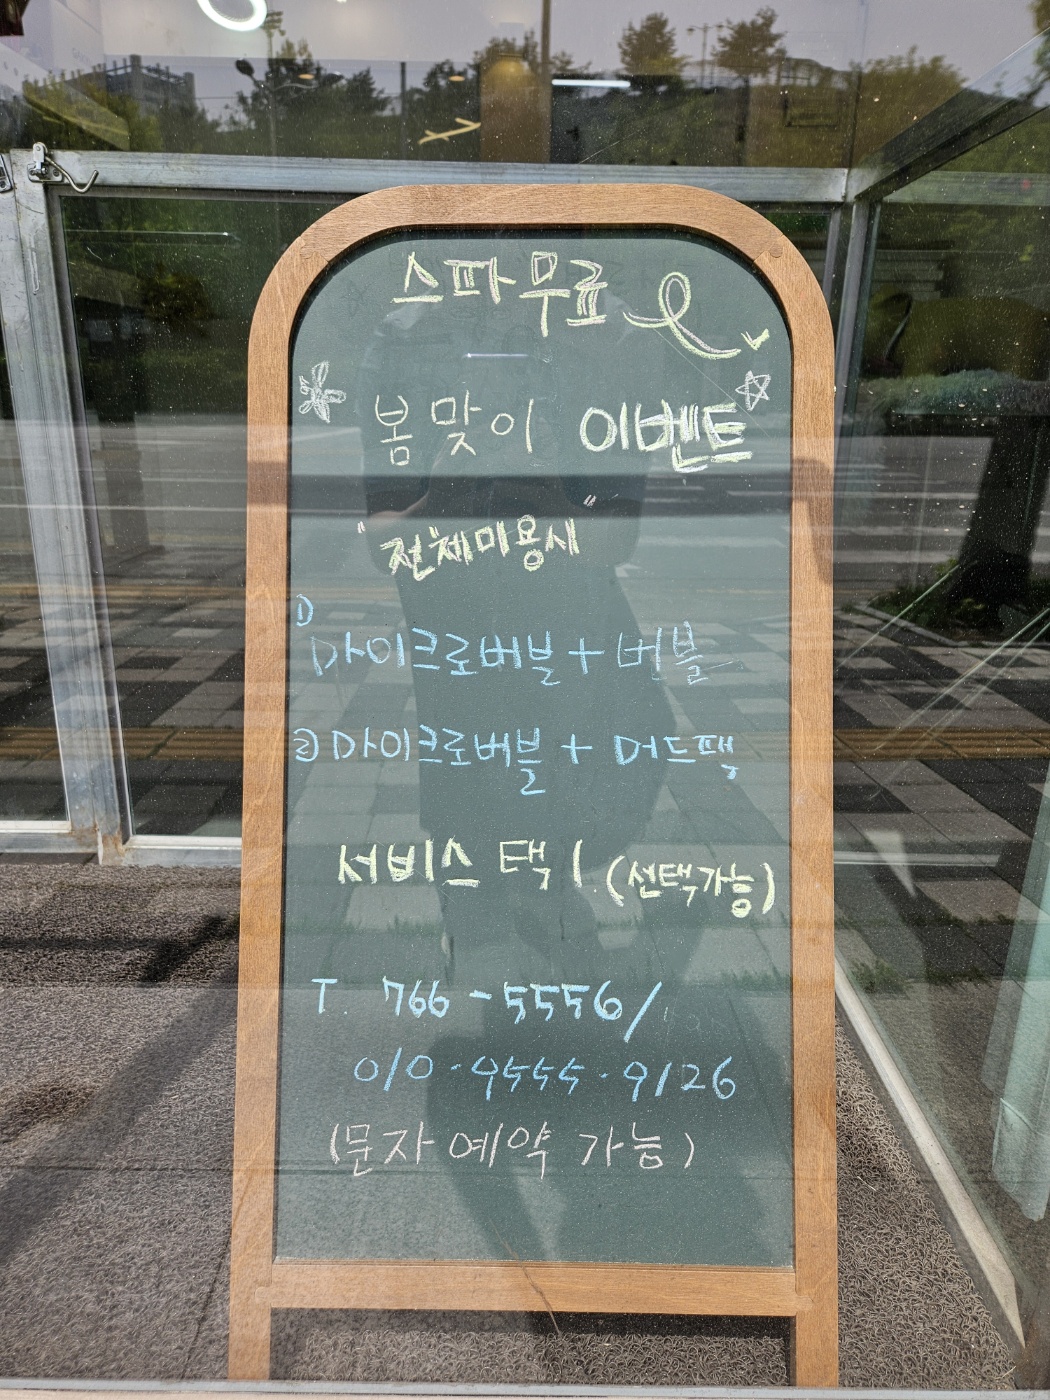 스파무료
봄맞이 이벤트
"전체미용시"
① 마이크로버블 + 버블
② 마이크로버블 + 머드팩
서비스 택1. (선택가능)
T. 766-5556/
010.9555.9126
(문자 예약 가능)